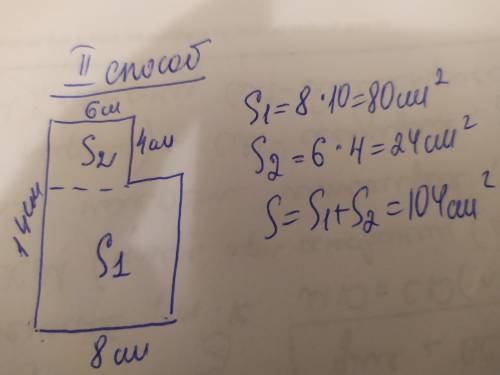 II способ
6см
S2
4см
14см
S1
8см
S1=8·10=80см²
S2=6·4=24см²
S=S1+S2=104см²